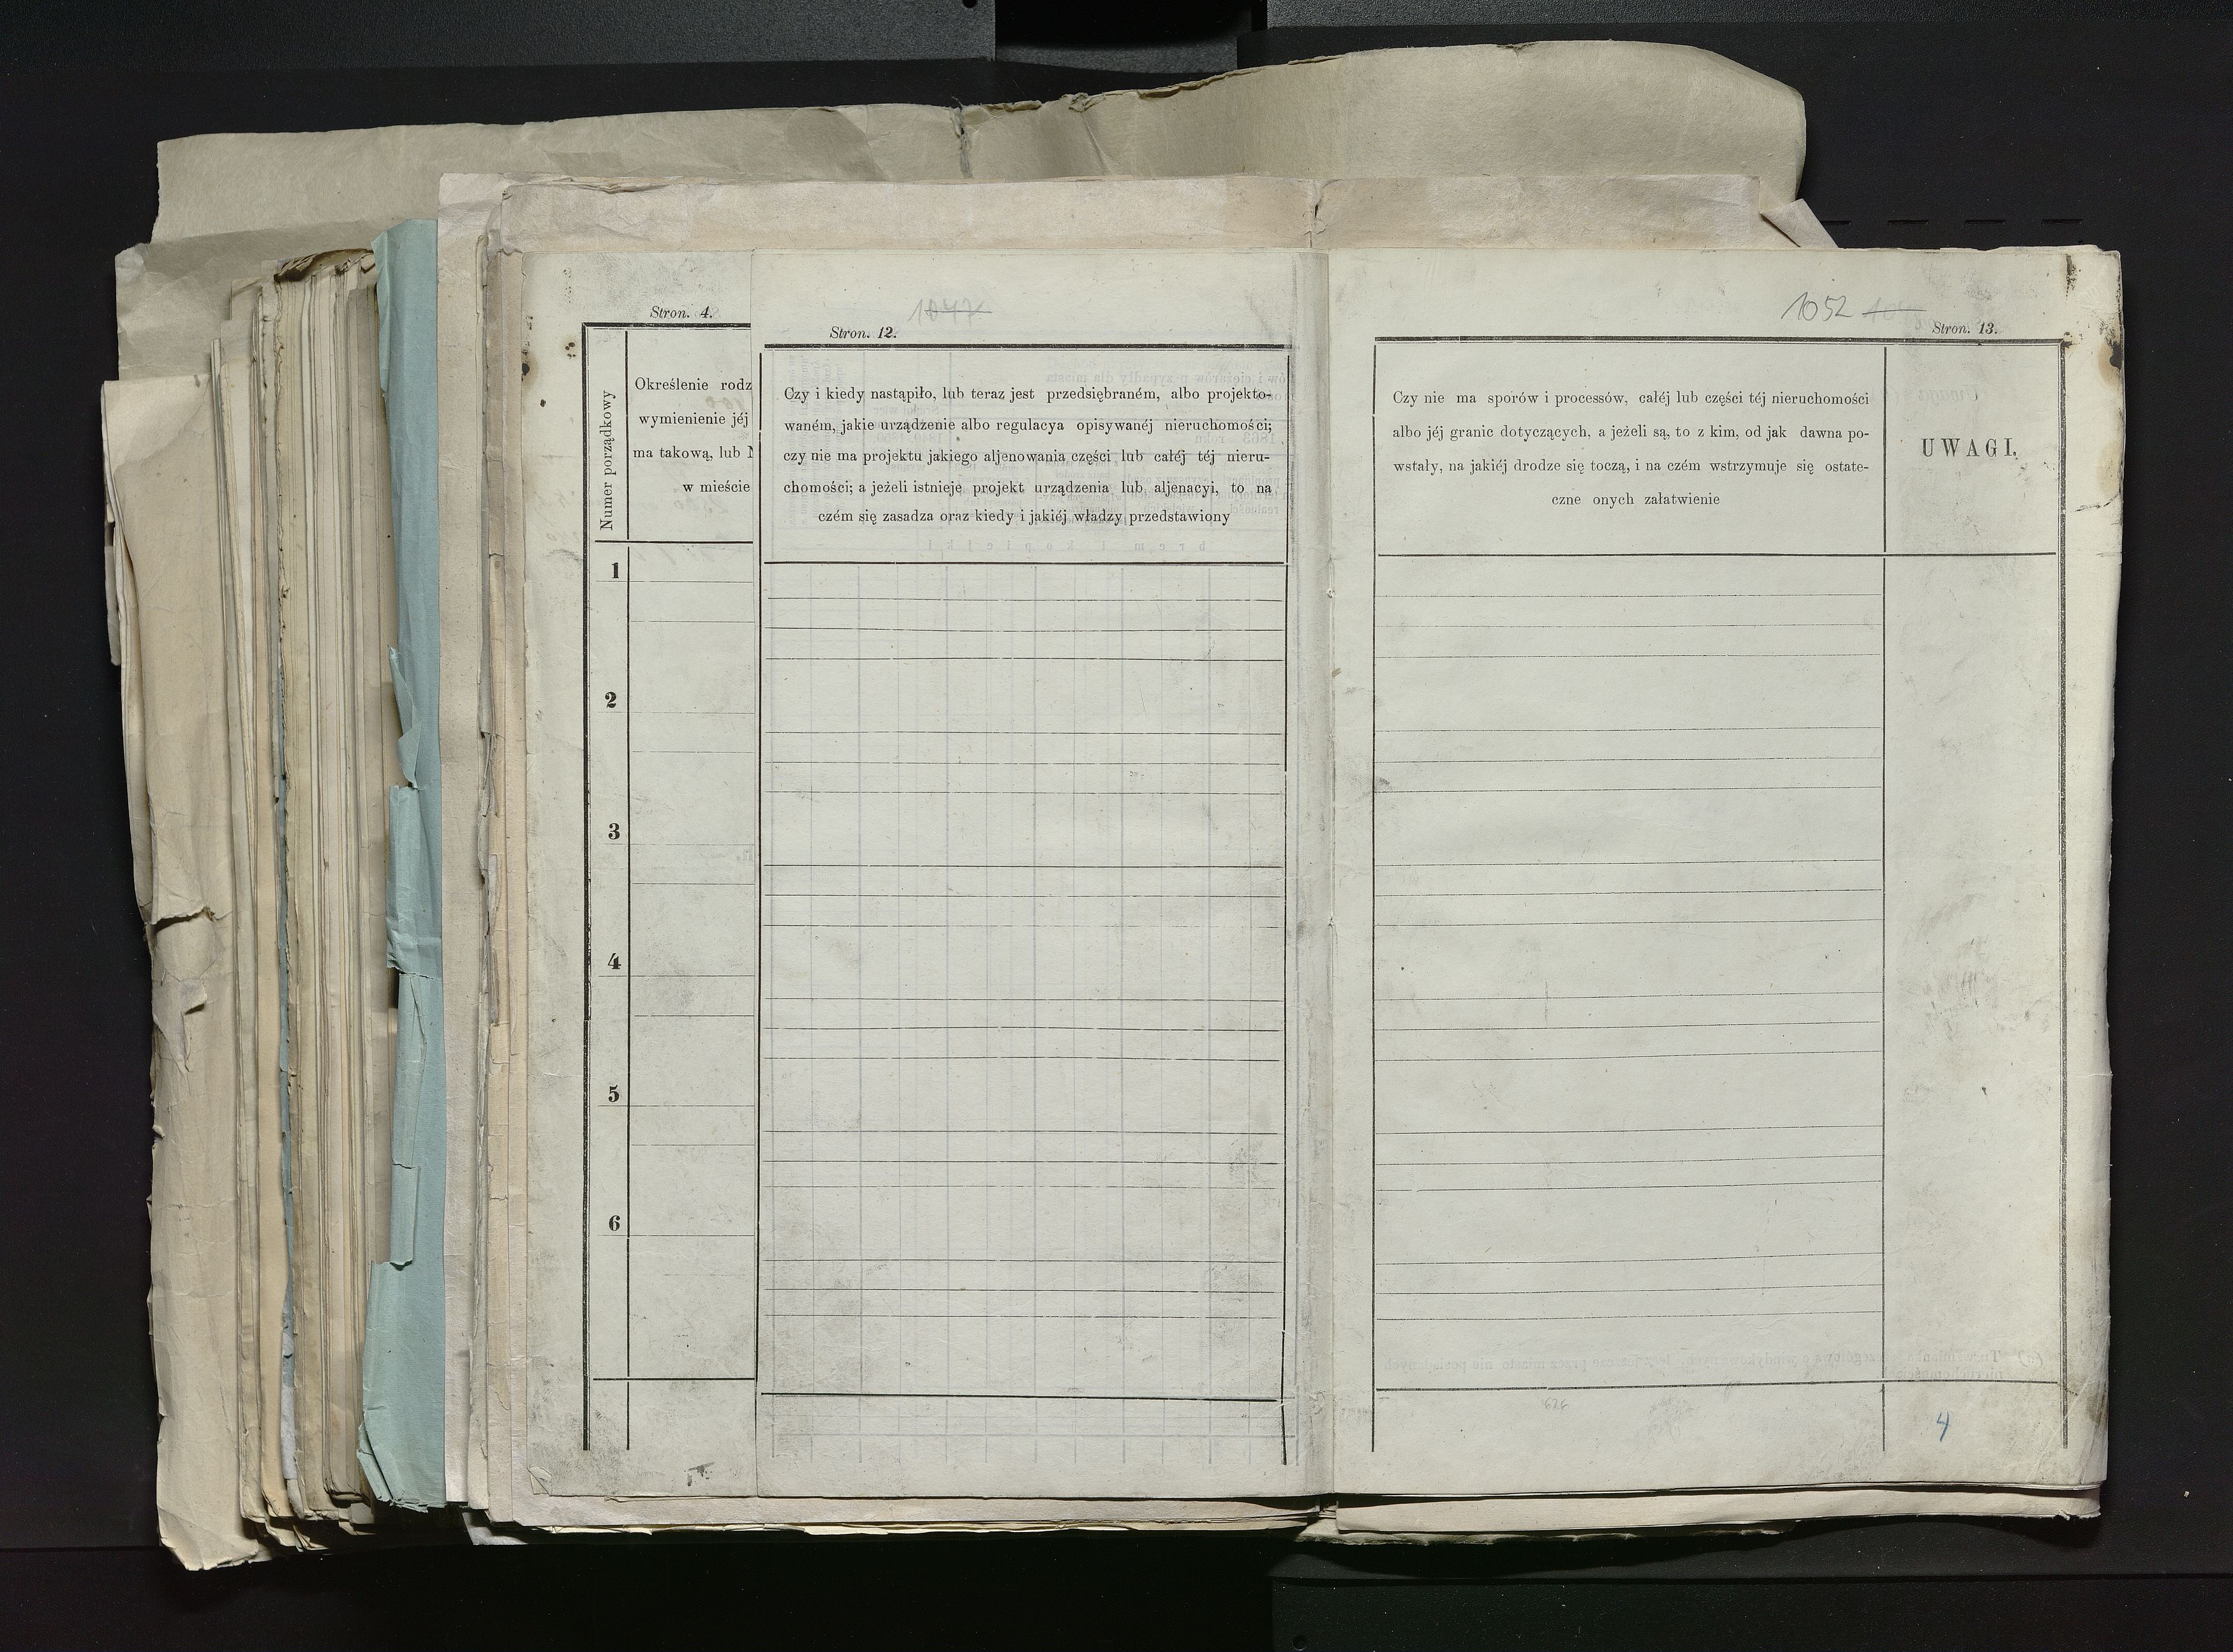 Stron. 4.
Numer porządkowy
Określenie rodz
wymienienie jéj
ma takową, lub N
w mieście
1
2
3
4
5
6
1047
Stron. 12.
Czy i kiedy nastąpiło, lub teraz jest przedsiębraném, albo projekto-
waném, jakie urządzenie albo regulacya opisywanéj nieruchomości;
czy nie ma projektu jakiego aljenowania części lub całéj téj nieru-
chomości; a jeżeli istnieje projekt urządzenia lub aljenacyi, to na
czém się zasadza oraz kiedy i jakiéj władzy przedstawiony
1052
Stron. 13.
Czy nie ma sporów i processów, całéj lub części téj nieruchomości
albo jéj granic dotyczących, a jeżeli są, to z kim, od jak dawna po-
wstały, na jakiéj drodze się toczą, i na czém wstrzymuje się ostate-
czne onych załatwienie
UWAGI.
4